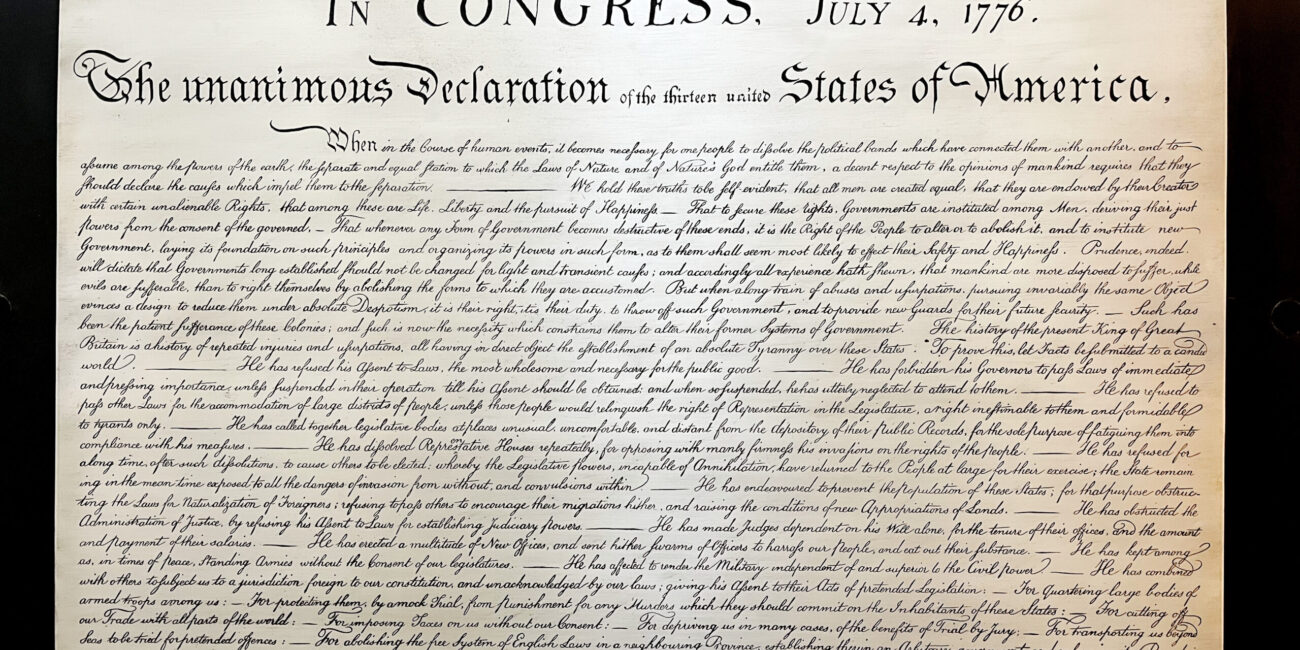 IN CONGRESS, JULY 4, 1776.
The unanimous Declaration of the thirteen united States of America,
When in the Course of human events, it becomes necessary for one people to dissolve the political bands which have connected them with another, and to
assume among the powers of the earth, the separate and equal station to which the Laws of Nature and of Nature's God entitle them, a decent respect to the opinions of mankind requires that they
should declare the causes which impel them to the separation. ——— We hold these truths to be self-evident, that all men are created equal, that they are endowed by their Creator
with certain unalienable Rights, that among these are Life, Liberty and the pursuit of Happiness — That to secure these rights, Governments are instituted among Men, deriving their just
powers from the consent of the governed, — That whenever any Form of Government becomes destructive of these ends, it is the Right of the People to alter or to abolish it, and to institute new
Government, laying its foundation on such principles and organizing its powers in such form, as to them shall seem most likely to effect their Safety and Happiness. Prudence, indeed,
will dictate that Governments long established should not be changed for light and transient causes; and accordingly all experience hath shewn, that mankind are more disposed to suffer, while
evils are sufferable, than to right themselves by abolishing the forms to which they are accustomed. But when a long train of abuses and usurpations, pursuing invariably the same Object
evinces a design to reduce them under absolute Despotism, it is their right, it is their duty, to throw off such Government, and to provide new Guards for their future security. — Such has
been the patient sufferance of these Colonies; and such is now the necessity which constrains them to alter their former Systems of Government. The history of the present King of Great
Britain is a history of repeated injuries and usurpations, all having in direct object the establishment of an absolute Tyranny over these States. To prove this, let Facts be submitted to a candid
world. ——— He has refused his Assent to Laws, the most wholesome and necessary for the public good. ——— He has forbidden his Governors to pass Laws of immediate
and pressing importance, unless suspended in their operation till his Assent should be obtained; and when so suspended, he has utterly neglected to attend to them. ——— He has refused to
pass other Laws for the accommodation of large districts of people, unless those people would relinquish the right of Representation in the Legislature, a right inestimable to them and formidable
to tyrants only. ——— He has called together legislative bodies at places unusual, uncomfortable, and distant from the depository of their Public Records, for the sole purpose of fatiguing them into
compliance with his measures. ——— He has dissolved Representative Houses repeatedly, for opposing with manly firmness his invasions on the rights of the people. ——— He has refused for
a long time, after such dissolutions, to cause others to be elected; whereby the Legislative powers, incapable of Annihilation, have returned to the People at large for their exercise; the State remain
ing in the mean time exposed to all the dangers of invasion from without, and convulsions within. ——— He has endeavoured to prevent the population of these States; for that purpose obstruc-
ting the Laws for Naturalization of Foreigners; refusing to pass others to encourage their migrations hither, and raising the conditions of new Appropriations of Lands. ——— He has obstructed the
Administration of Justice, by refusing his Assent to Laws for establishing Judiciary powers. ——— He has made Judges dependent on his Will alone, for the tenure of their offices, and the amount
and payment of their salaries. ——— He has erected a multitude of New Offices, and sent hither swarms of Officers to harrass our People, and eat out their substance. — He has kept among
us, in times of peace, Standing Armies without the Consent of our legislatures. ——— He has affected to render the Military independent of and superior to the Civil power. ——— He has combined
with others to subject us to a jurisdiction foreign to our constitution, and unacknowledged by our laws; giving his Assent to their Acts of pretended Legislation: — For Quartering large bodies of
armed troops among us: — For protecting them, by a mock Trial, from punishment for any Murders which they should commit on the Inhabitants of these States: — For cutting off
our Trade with all parts of the world: — For imposing Taxes on us without our Consent: — For depriving us in many cases, of the benefits of Trial by Jury: — For transporting us beyond
Seas to be tried for pretended offences: — For abolishing the free System of English Laws in a neighbouring Province, establishing therein an Arbitrary